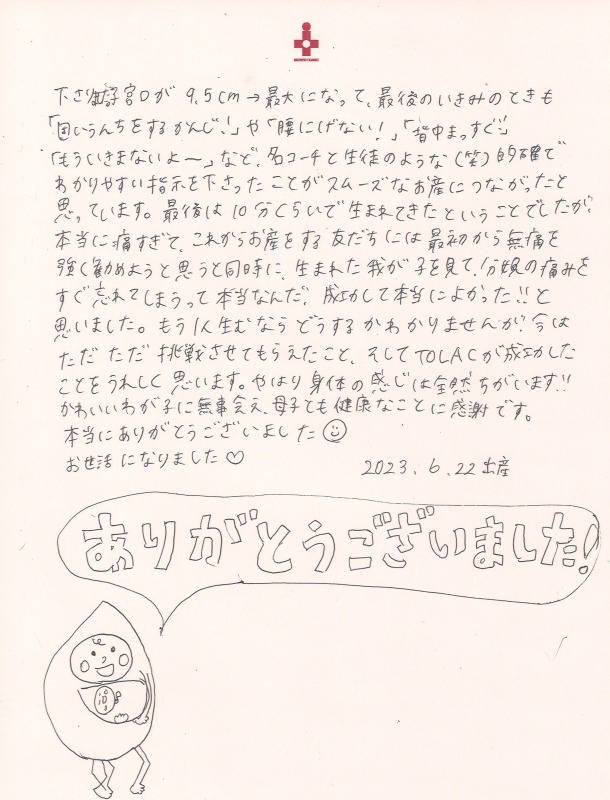 下さり、子宮口が 9.5cm→最大になって、最後のいきみのときも
「固いうんちをするかんじ!」や「腰にげない!」「背中まっすぐ!」
「もういきまないよ〜」など、名コーチと生徒のような(笑)的確で
わかりやすい指示を下さったことがスムーズなお産につながったと
思っています。最後は10分くらいで生まれてきたということでしたが、
本当に痛すぎて、これからお産をする友だちには最初から無痛を
強く勧めようと思うと同時に、生まれた我が子を見て、分娩の痛みを
すぐ忘れてしまうって本当なんだ、成功して本当によかった!!と
思いました。もう1人生むならどうするかわかりませんが、今は
ただただ挑戦させてもらえたこと、そしてTOLACが成功した
ことをうれしく思います。やはり身体の感じは全然ちがいます!!
かわいいわが子に無事会え、母子とも健康なことに感謝です。
本当にありがとうございました
お世話になりました♡
2023.6.22出産
ありがとうございました!